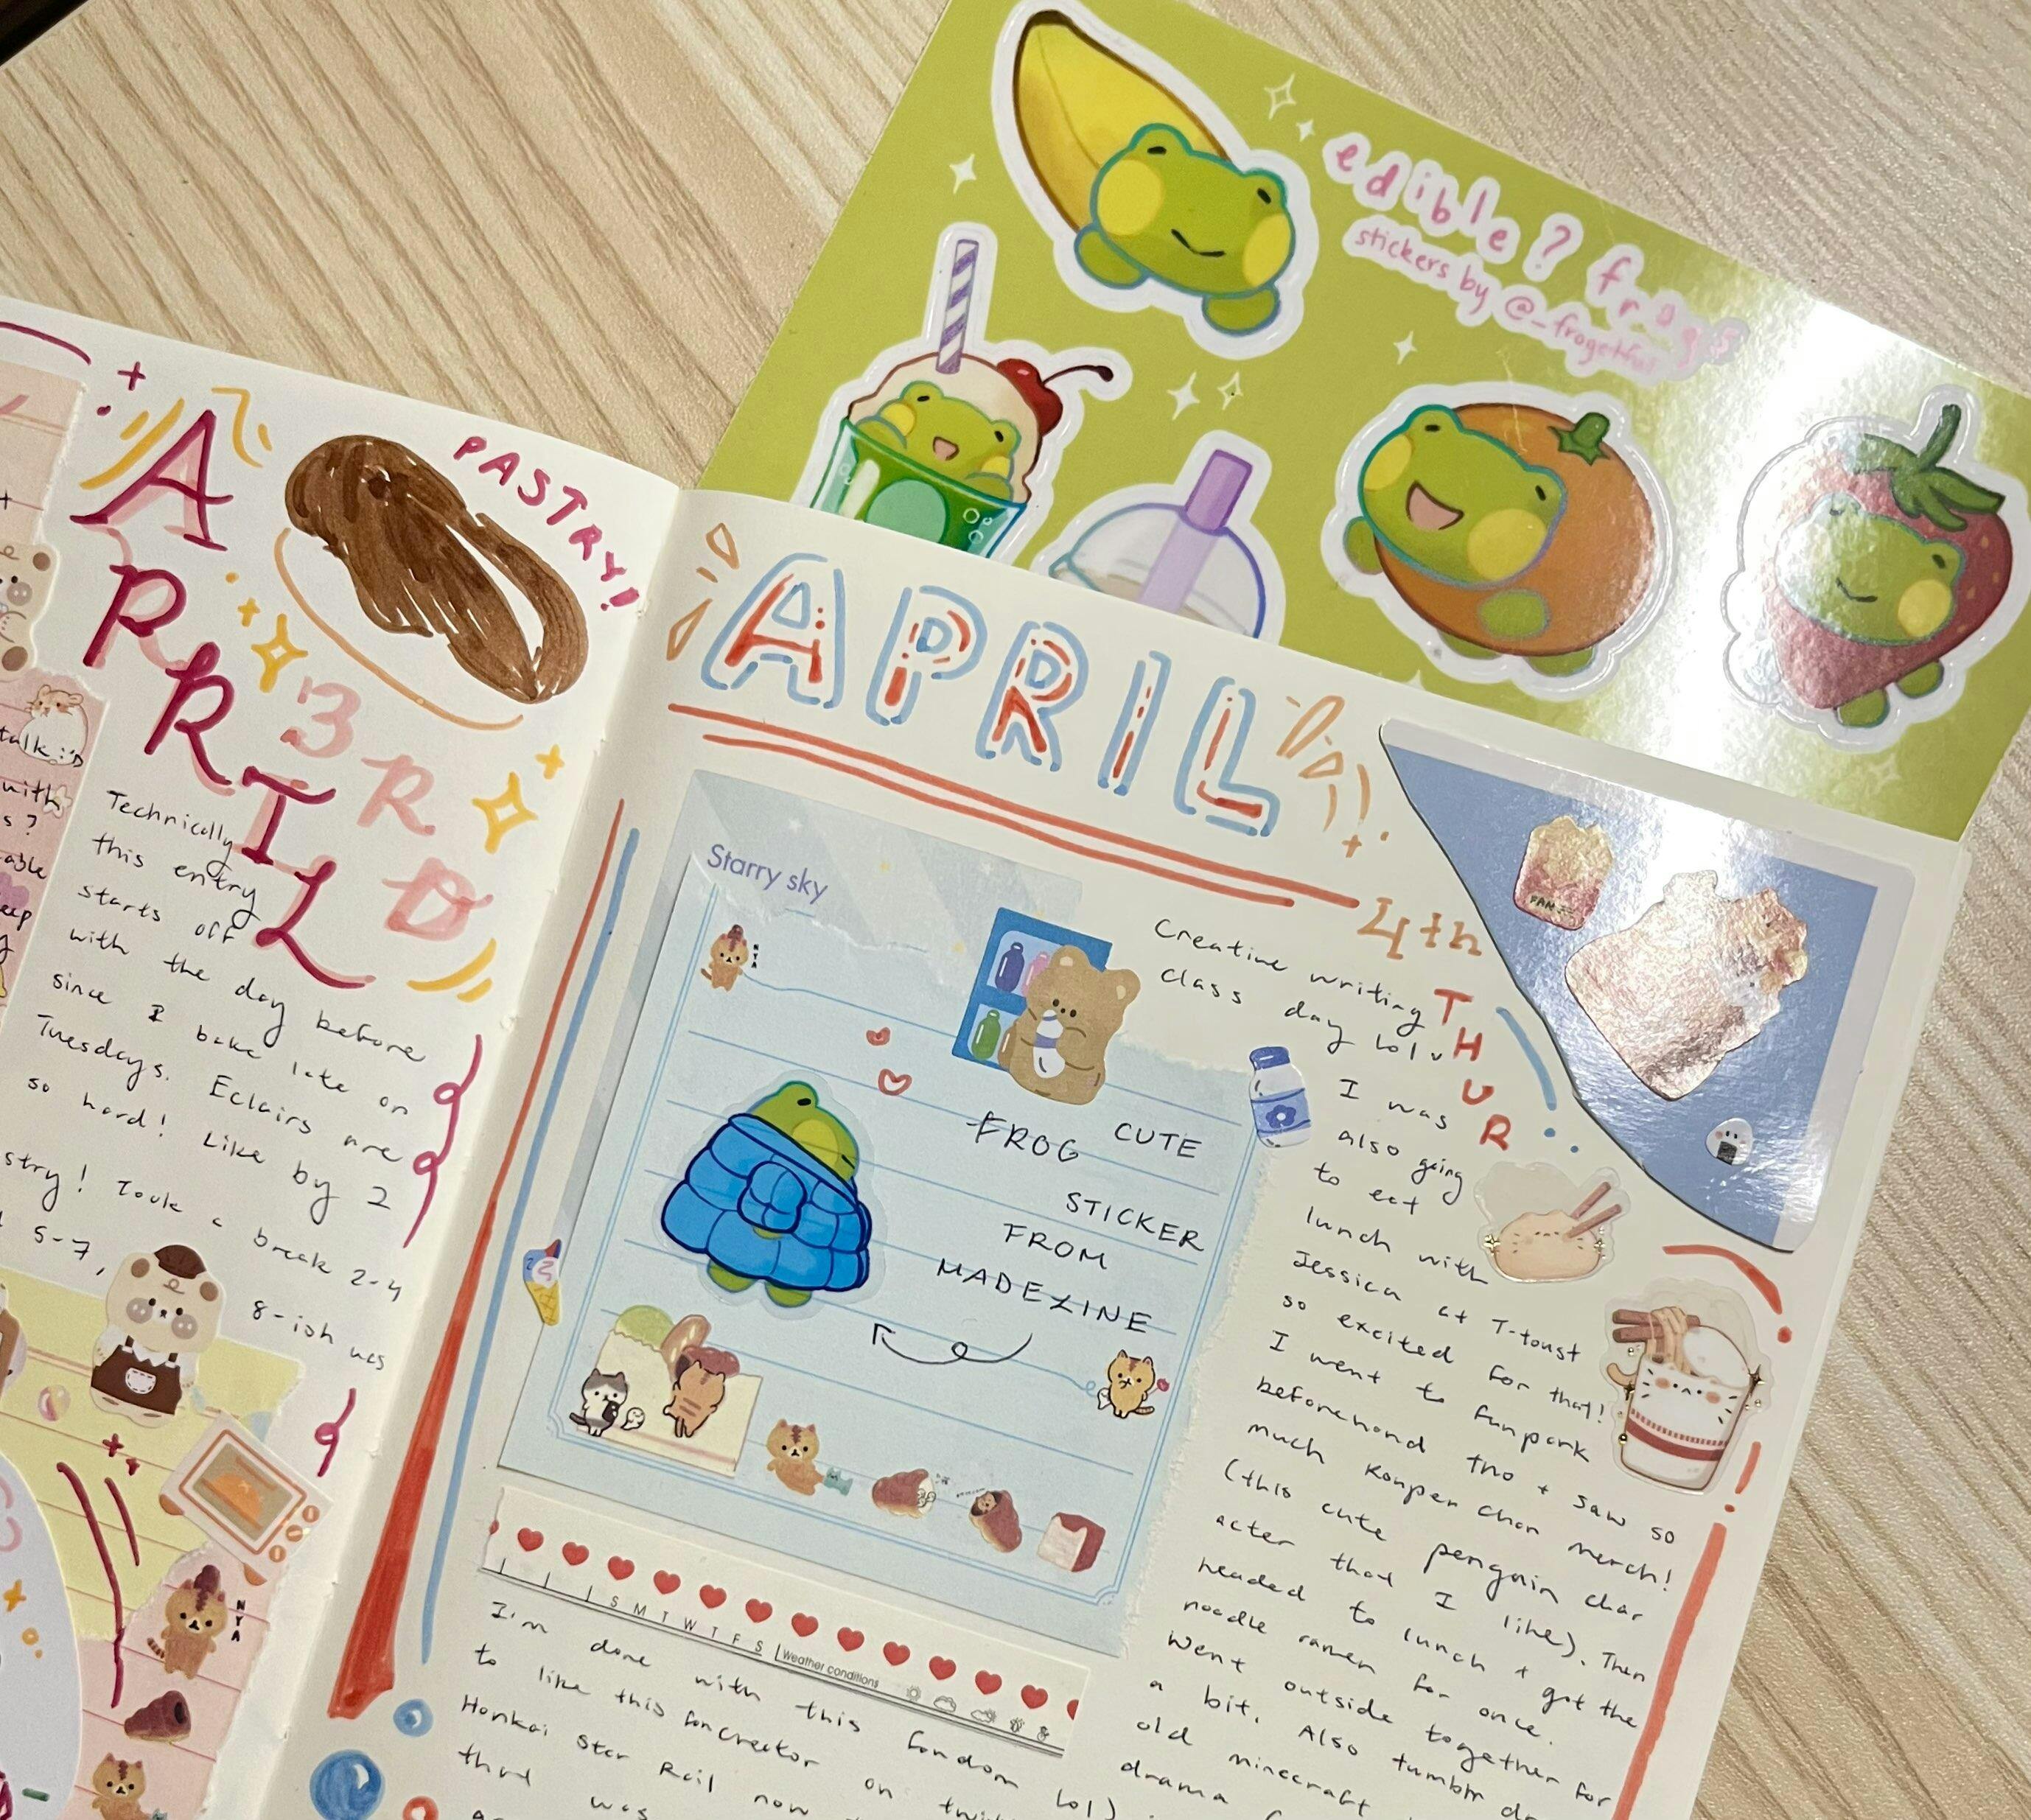 edible? frogs
stickers by @_frogetful
A
P
R
I
L
3
R
D
PASTRY!
talk :'D
with
s?
Technically
this entry
starts off
with the day before
since I bake late on
Tuesdays. Eclairs are
so hard! Like by 2
stry! Took a break 2-4
5-7,
8-ish was
NYA
APRIL
4th
THUR
Starry sky
NYA
CUTE
FROG
STICKER
FROM
MADEZINE
S M T W T F S Weather conditions
PAN
Creative writing
class day lol.
I was
also going
to eat
lunch with
Jessica at T-toast
so excited for that!
I went to funpark
beforehand tho + saw so
much Konpen chan merch!
(this cute penguin char
acter that I like). Then
headed to lunch + got the
noodle ramen for once.
Went outside together for
a bit. Also tumblr
old minecraft
drama
I'm done with this fandom lol)
to like this fancreator on
Honkai star Rail now
that was